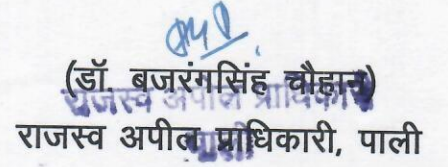 (डॉ. बजरंगसिंह चौहान)
राजस्व अपील प्राधिकारी
राजस्व अपील प्राधिकारी, पाली
पाली